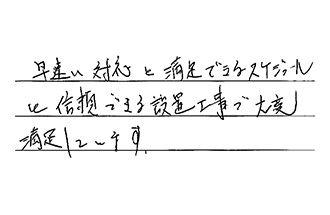 早速い対応と満足できるスケジュール
と信頼できる設置工事で大変
満足しています。